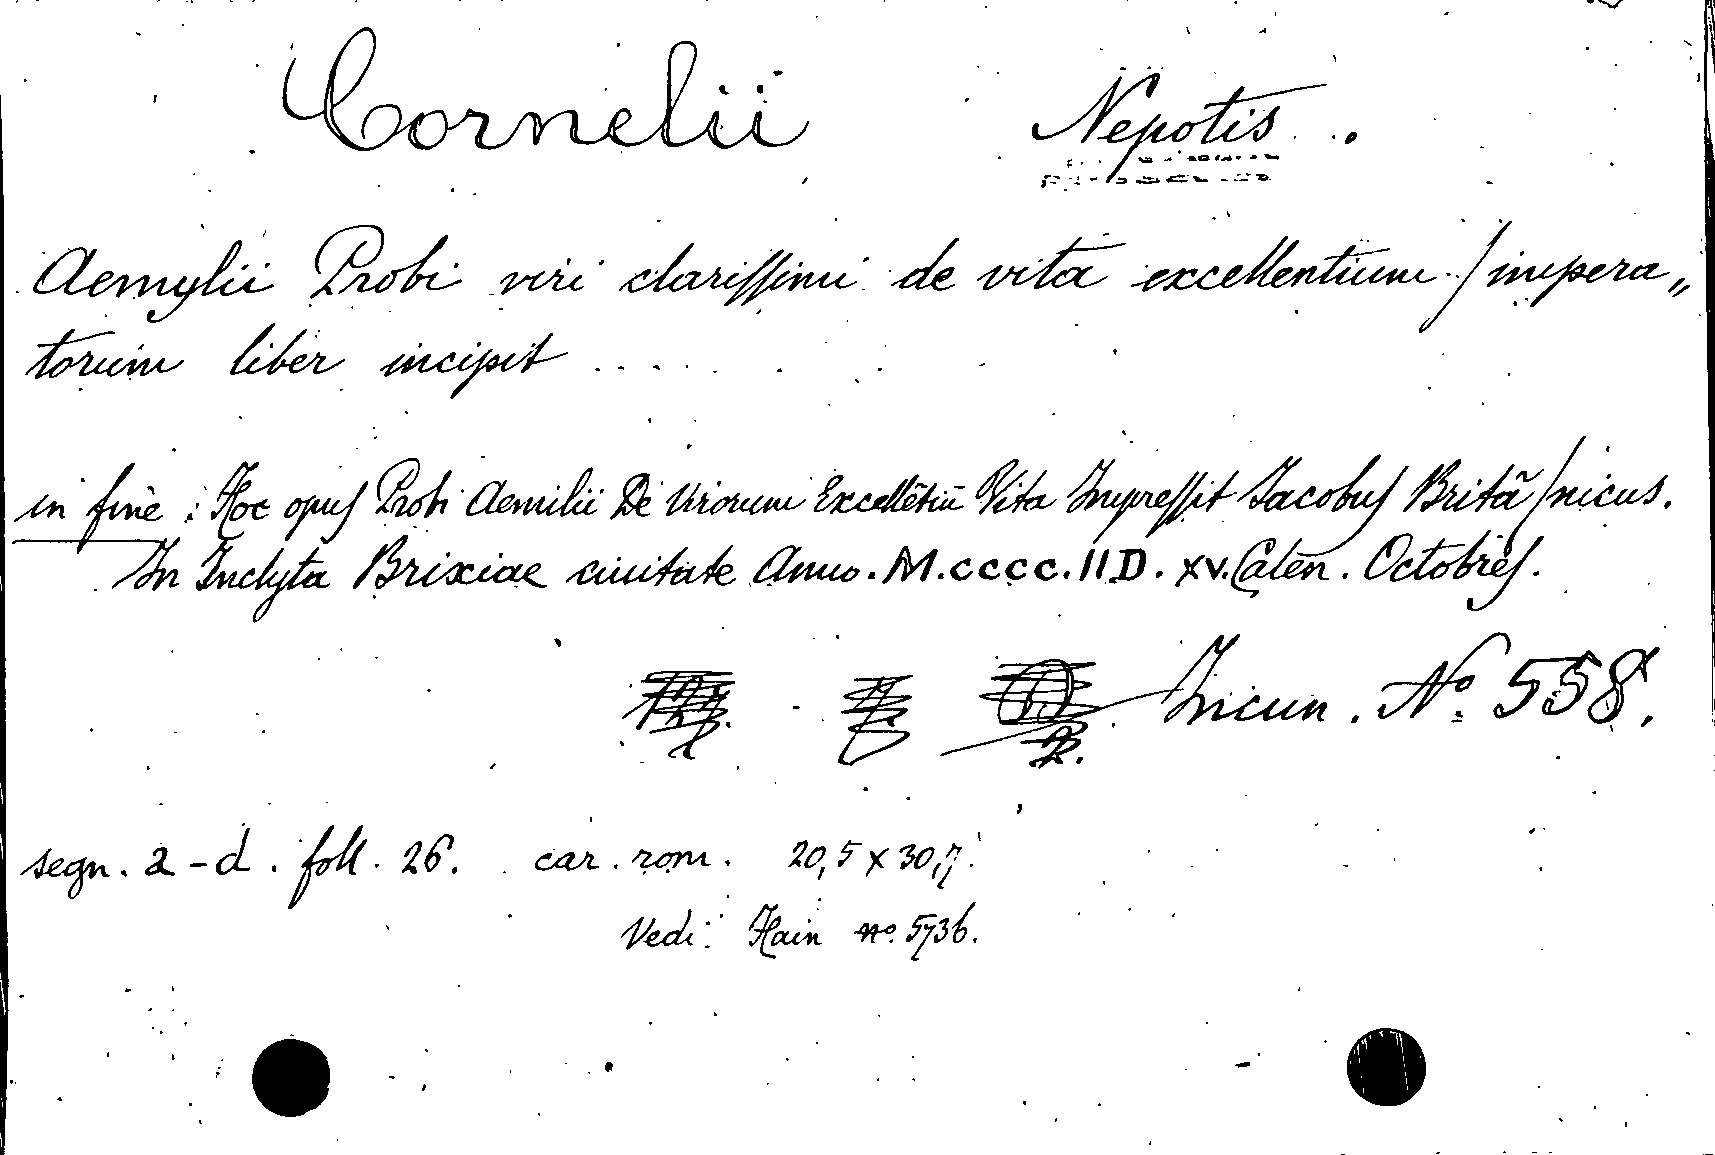 Cornelii Nepotis .
Aemylii Probi viri clarissimi de vita excellentium / impera„
torum liber incipit . . . .
in fine : Hoc opus Probi Aemilii De Virorum Excellētiū Vita Impressit Jacobus Britā / nicus.
In Inclyta Brixiae ciuitate Anno . M.cccc.IID. xv. Calen. Octobres.
Incun. Nº 558.
segn. a - d . foll. 26. car. rom. 20,5 x 30,7.
Vedi: Hain nº 5736.